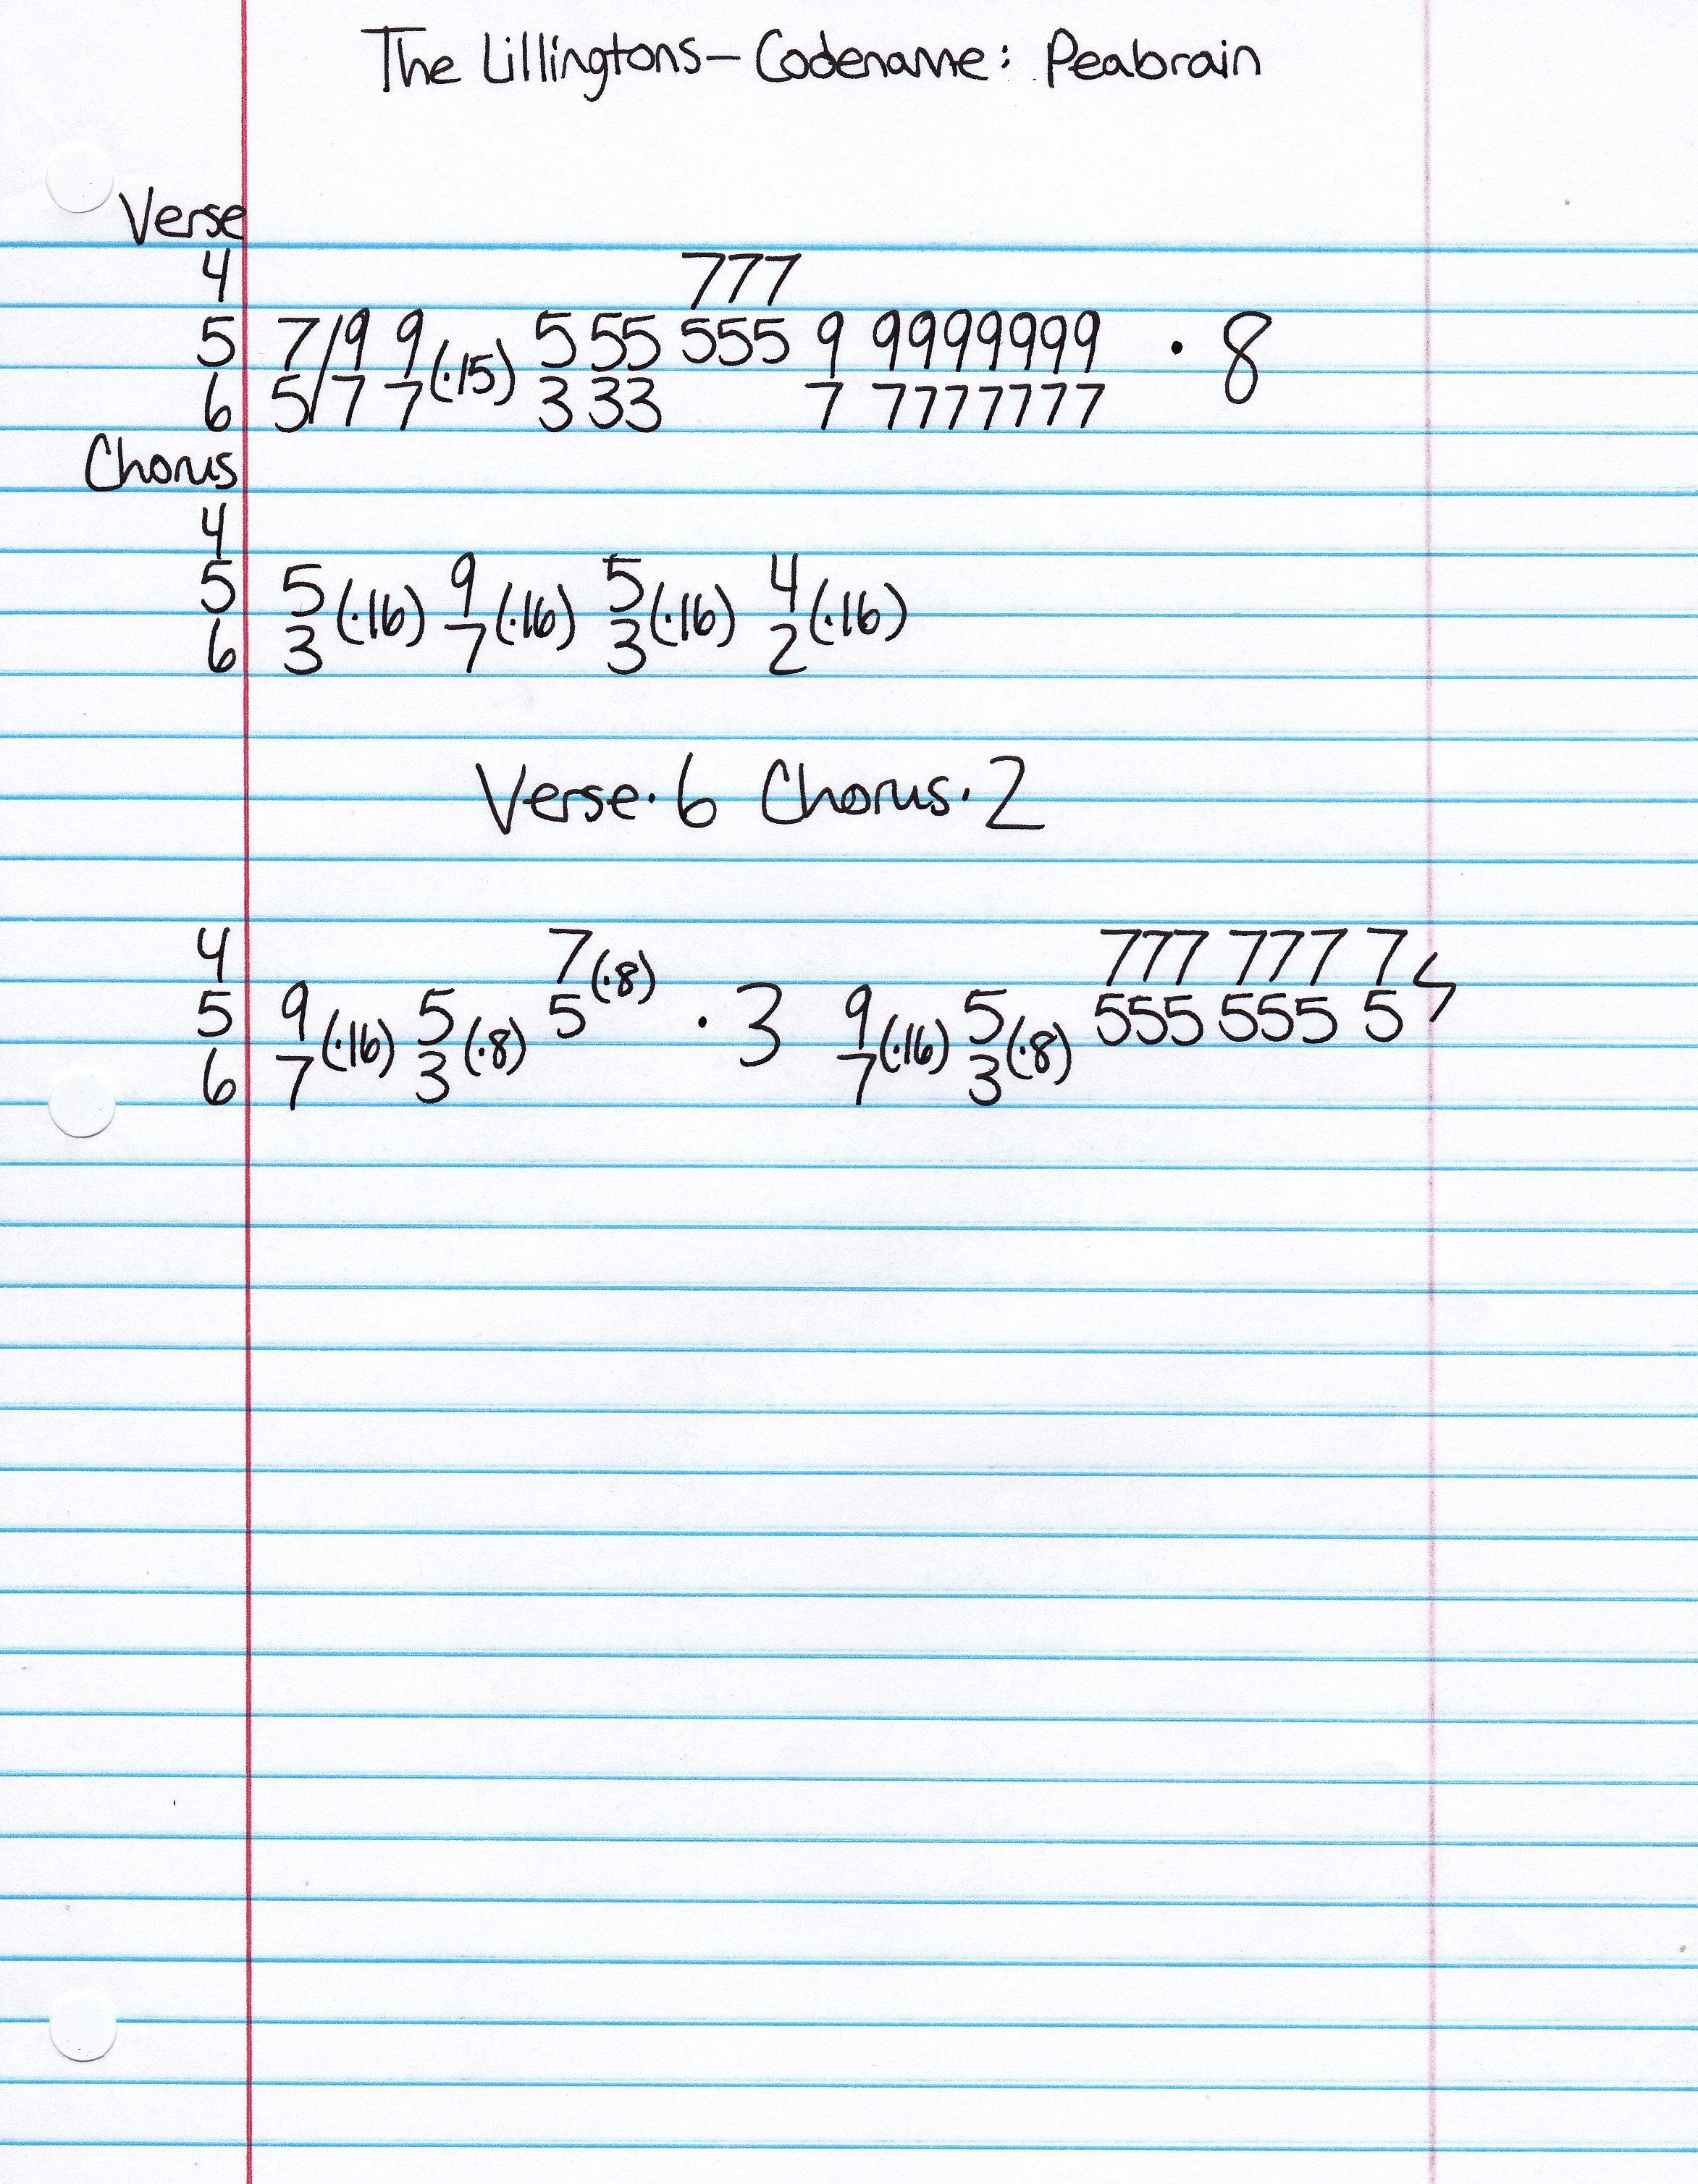 The Lillingtons — Codename: Peabrain
Verse
4 777
5 7/9 9 (·15) 5 55 555 9 9999999 · 8
6 5/7 7 3 33 7 7777777
Chorus
4
5 5 (·16) 9 (·16) 5 (·16) 4 (·16)
6 3 7 3 2
Verse·6 Chorus·2
4 7 (·8) 777 777 7
5 9 (·16) 5 (·8) 5 · 3 9 (·16) 5 (·8) 555 555 5
6 7 3 7 3